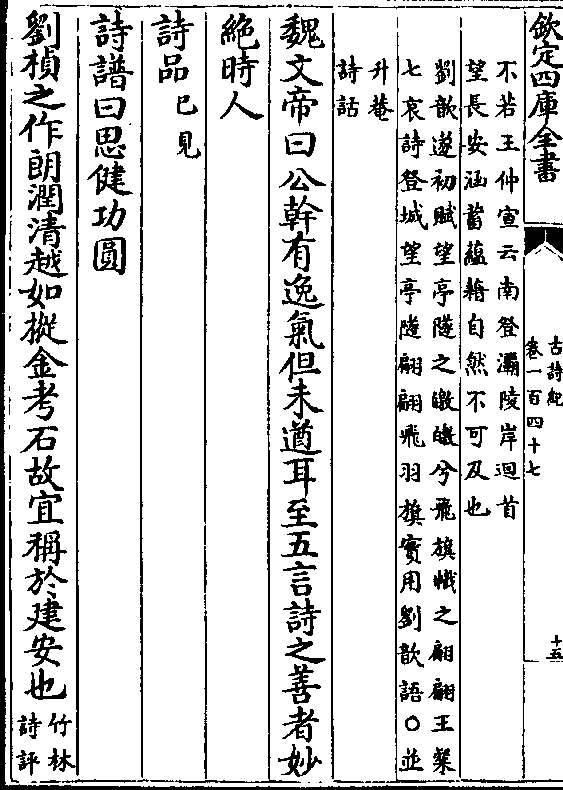 欽定四庫全書
古詩紀
卷一百四十七
十五
不若王仲宣云南登灞陵岸迴首
望長安涵蓄蘊藉自然不可及也
劉歆遂初賦望亭隧之皦皦兮飛旗幟之翩翩王粲
七哀詩登城望亭隧翩翩飛羽旗實用劉歆語○並
升菴
詩話
魏文帝曰公幹有逸氣但未遒耳至五言詩之善者妙
絶時人
詩品已見
詩譜曰思健功圓
劉楨之作朗潤清越如摐金考石故宜稱於建安也竹林
詩評